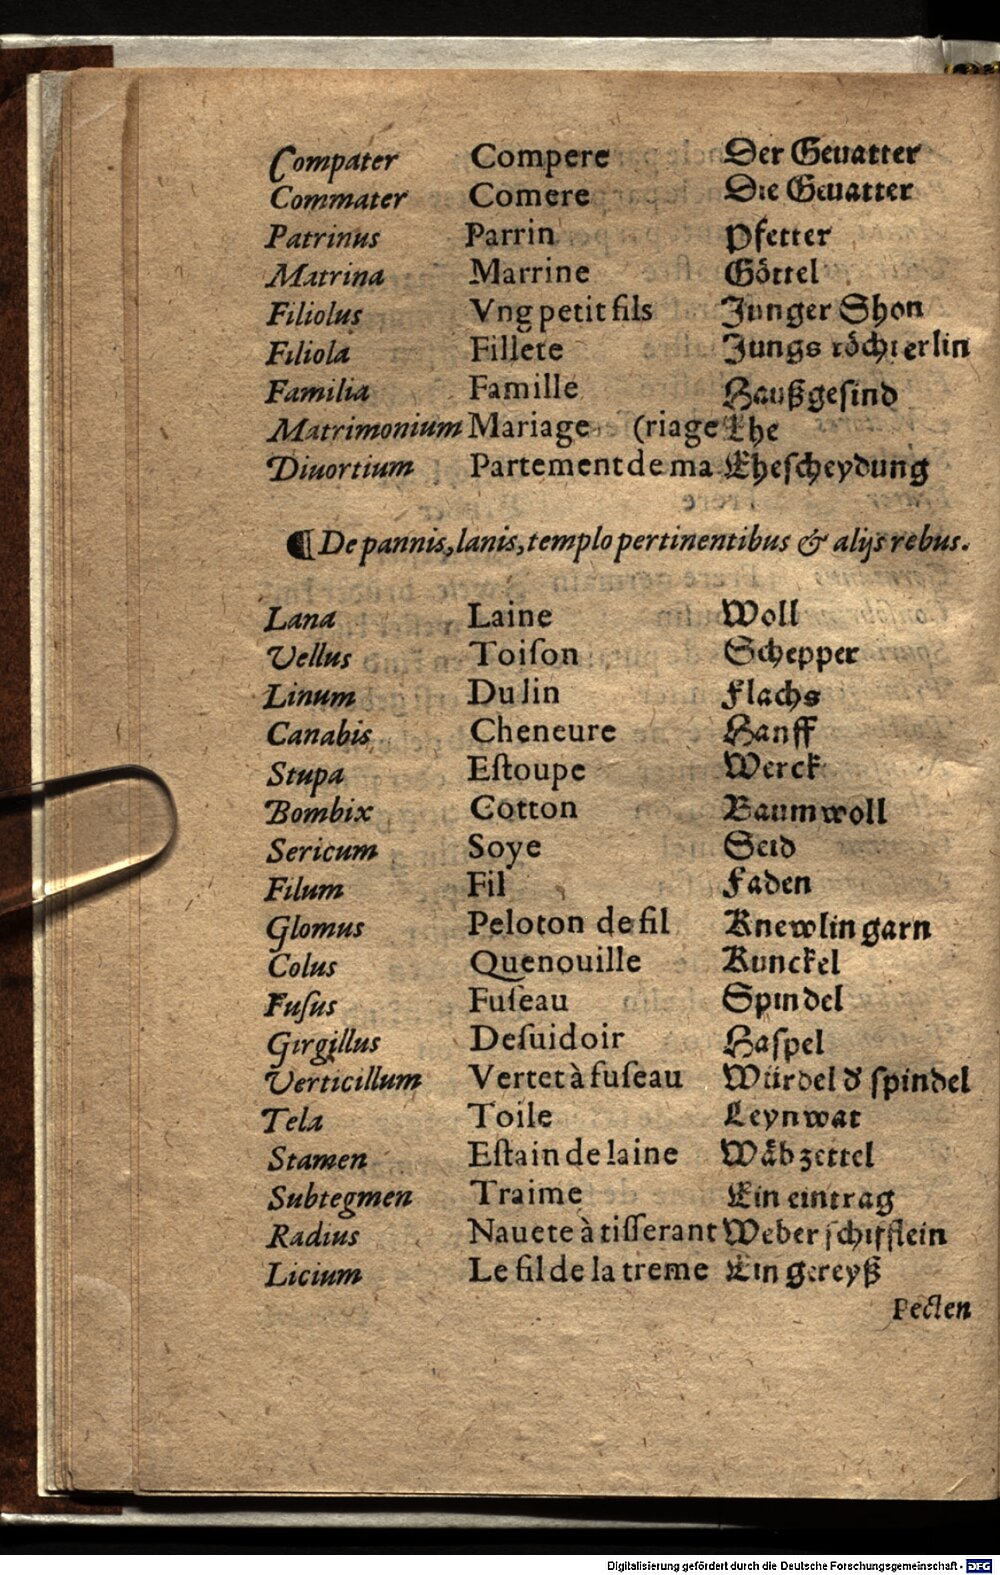 Compater Compere Der Geuatter
Commater Comere Die Geuatter
Patrinus Parrin Pfetter
Matrina Marrine Göttel
Filiolus Vng petit fils Junger Shon
Filiola Fillete Jungs töchterlin
Familia Famille Haußgesind
Matrimonium Mariage (riage Ehe
Diuortium Partement de ma Ehescheydung
¶ De pannis, lanis, templo pertinentibus & alijs rebus.
Lana Laine Woll
Vellus Toiſon Schepper
Linum Du lin Flachs
Canabis Cheneure Hanff
Stupa Eſtoupe Werck
Bombix Cotton Baumwoll
Sericum Soye Seid
Filum Fil Faden
Glomus Peloton de fil Knewlin garn
Colus Quenouille Kunckel
Fuſus Fuſeau Spindel
Girgillus Deſuidoir Haſpel
Verticillum Vertet à fuſeau Würdel d' ſpindel
Tela Toile Leynwat
Stamen Eſtain de laine Wäbzettel
Subtegmen Traime Ein eintrag
Radius Nauete à tiſſerant Weber ſchifflein
Licium Le fil de la treme Ein gereyß
Pecten
Digitalisierung gefördert durch die Deutsche Forschungsgemeinschaft - DFG